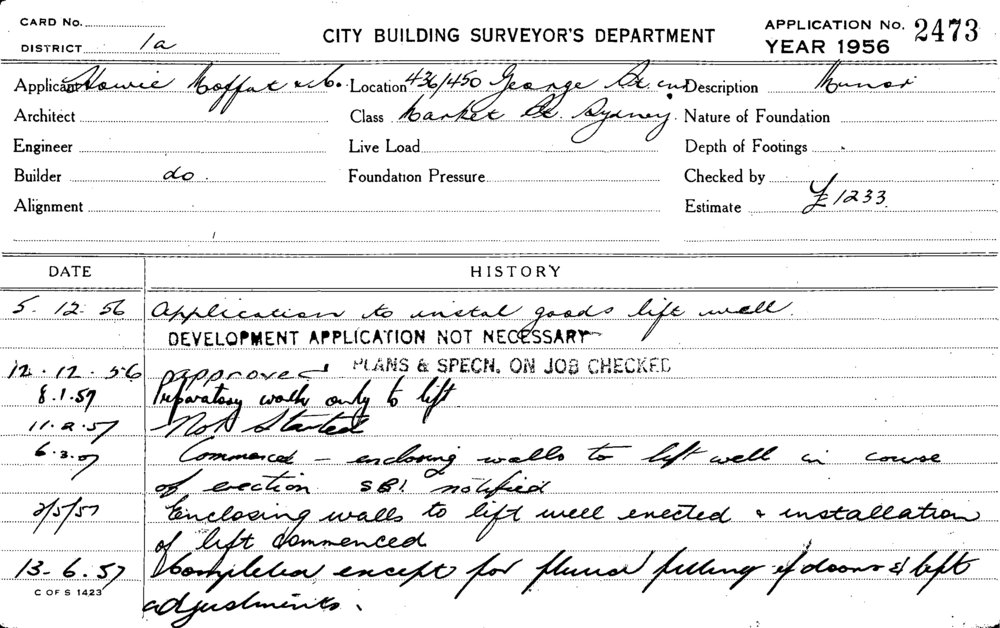 CARD No.
DISTRICT 1a
CITY BUILDING SURVEYOR'S DEPARTMENT
APPLICATION No. 2473
YEAR 1956
Applicant Howie Moffat & Co. Location 436/450 George St. cnr Description Minor
Architect Class Market St. Sydney. Nature of Foundation
Engineer Live Load Depth of Footings
Builder do. Foundation Pressure Checked by
Alignment Estimate £1233
DATE HISTORY
5. 12. 56 Application to instal goods lift well.
DEVELOPMENT APPLICATION NOT NECESSARY
12. 12. 56 approved PLANS & SPECN. ON JOB CHECKED
8.1.57 Preparatory work only to lift
11.2.57 Not Started
6.3.57 Commenced - enclosing walls to lift well in course
of erection SBI notified
2/5/57 Enclosing walls to lift well erected & installation
of lift commenced
13. 6. 57 Completed except for fitting of doors & lift
C OF S 1423
adjustments.